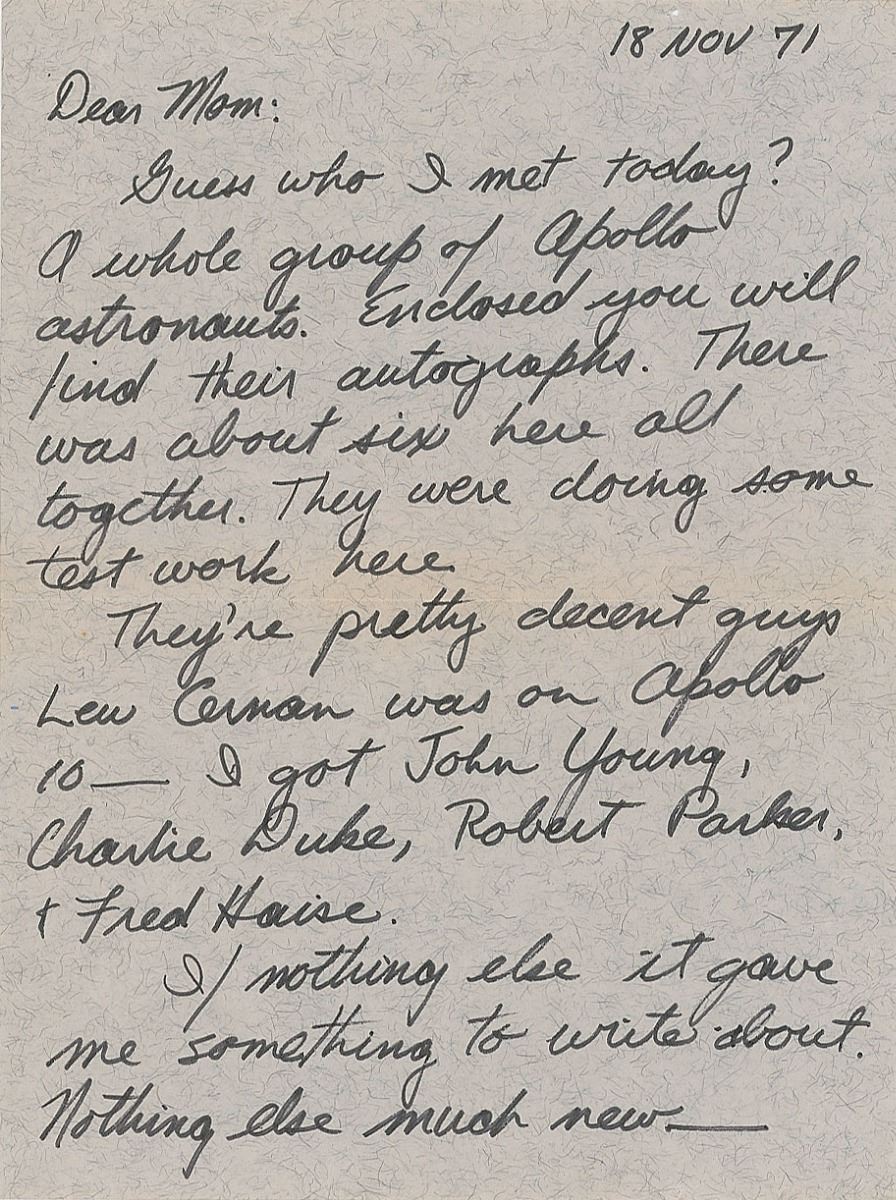 18 NOV 71
Dear Mom:
Guess who I met today?
A whole group of Apollo
astronauts. Enclosed you will
find their autographs. There
was about six here all
together. They were doing some
test work here
They're pretty decent guys
Lew Cernan was on Apollo
10— I got John Young,
Charlie Duke, Robert Parker,
+ Fred Haise.
If nothing else it gave
me something to write about.
Nothing else much new—